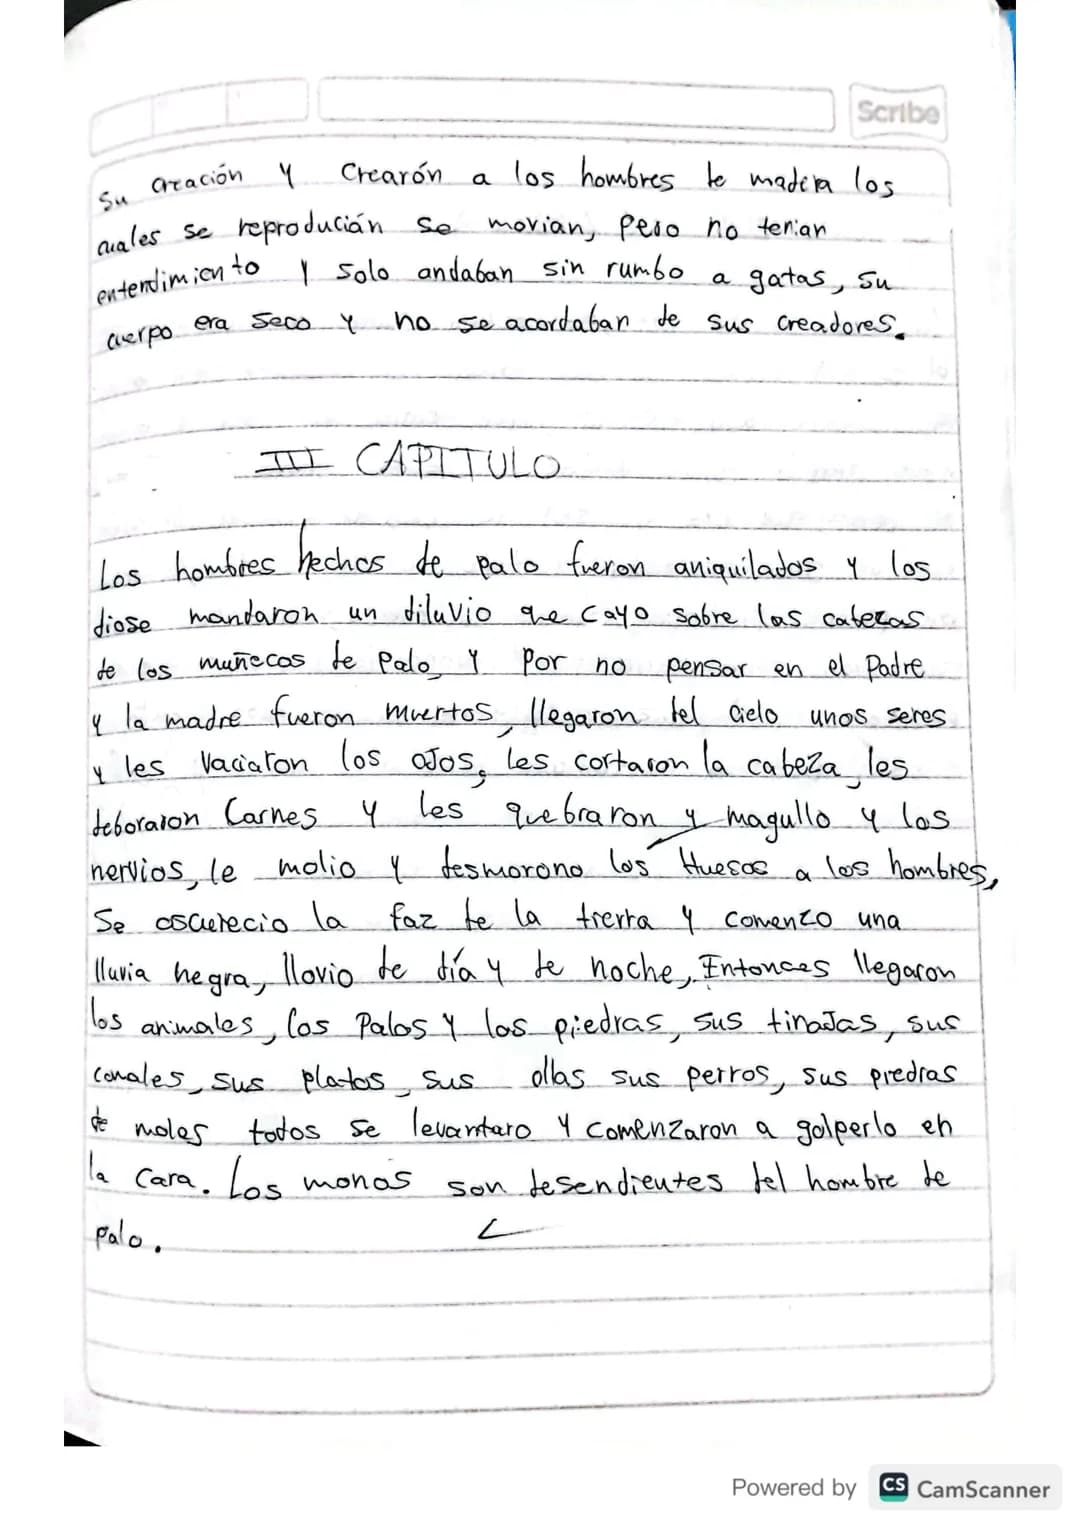 Scribe
Su creación y Crearón a los hombres de madera los
cuales se reprodución se movian, pero no tenian
entendimiento y solo andaban sin rumbo a gatas, su
cuerpo era seco y no se acordaban de sus creadores.
III CAPITULO
Los hombres hechos de palo fueron aniquilados y los
diose mandaron un diluvio que cayo sobre las cabezas
de los muñecos de palo, y por no pensar en el Padre
y la madre fueron muertos, llegaron del cielo unos seres
y les vaciaron los ojos, les cortaron la cabeza, les
deboraron Carnes y les quebraron y magullo y los
nervios, le molio y desmorono los Huesos a los hombres,
Se oscurecio la faz de la tierra y comenzo una
lluvia negra, llovio de día y de noche, Entonces llegaron
los animales, los Palos y las piedras, sus tinajas, sus
comales, sus platos, sus ollas sus perros, sus piedras
de moler todos se levantaro y comenzaron a golperlo en
la cara. Los monos son desendientes del hombre de
palo.
Powered by CS CamScanner